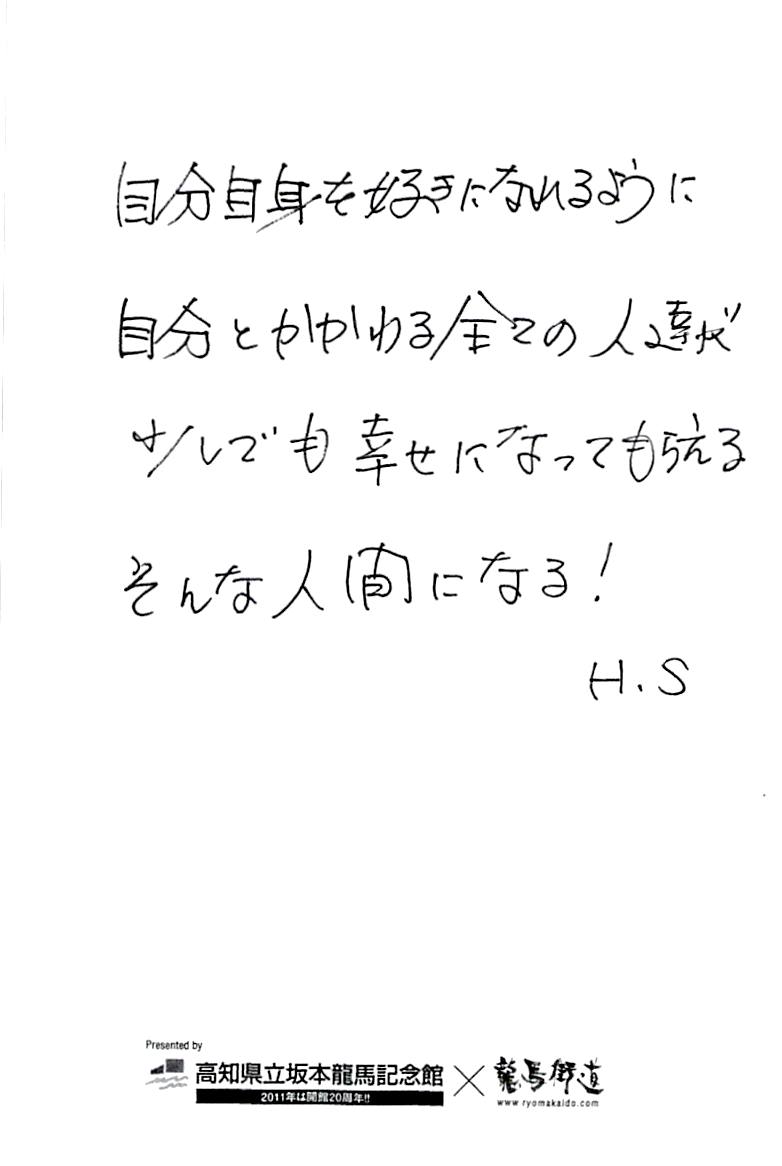 自分自身を好きになれるように
自分とかかわる全ての人達が
少しでも幸せになってもらえる
そんな人間になる!
H.S
Presented by
高知県立坂本龍馬記念館×龍馬街道
2011年は開館20周年!!
www.ryomakaido.com